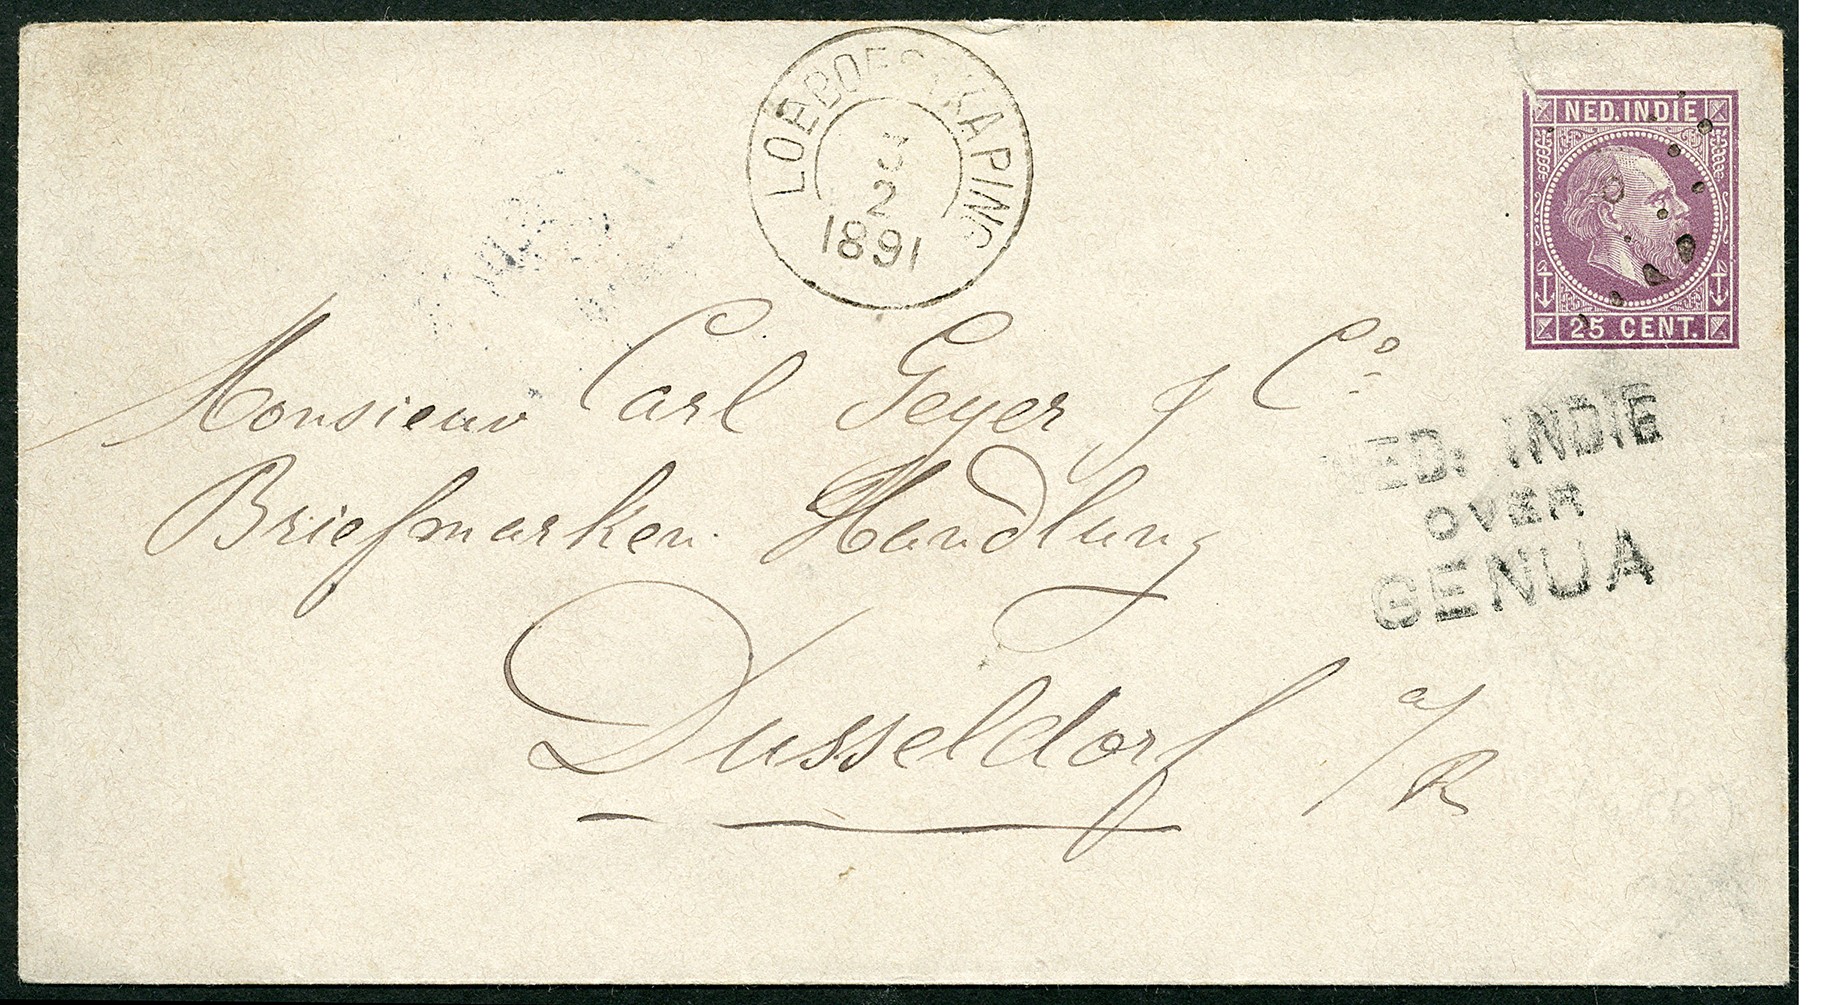 LOEBOESIKAPING
2
1891
NED. INDIE
25 CENT.
Monsieur Carl Geyer & Co
Briefmarken Handlung
Dusseldorf a/R
NED: INDIE
OVER
GENUA